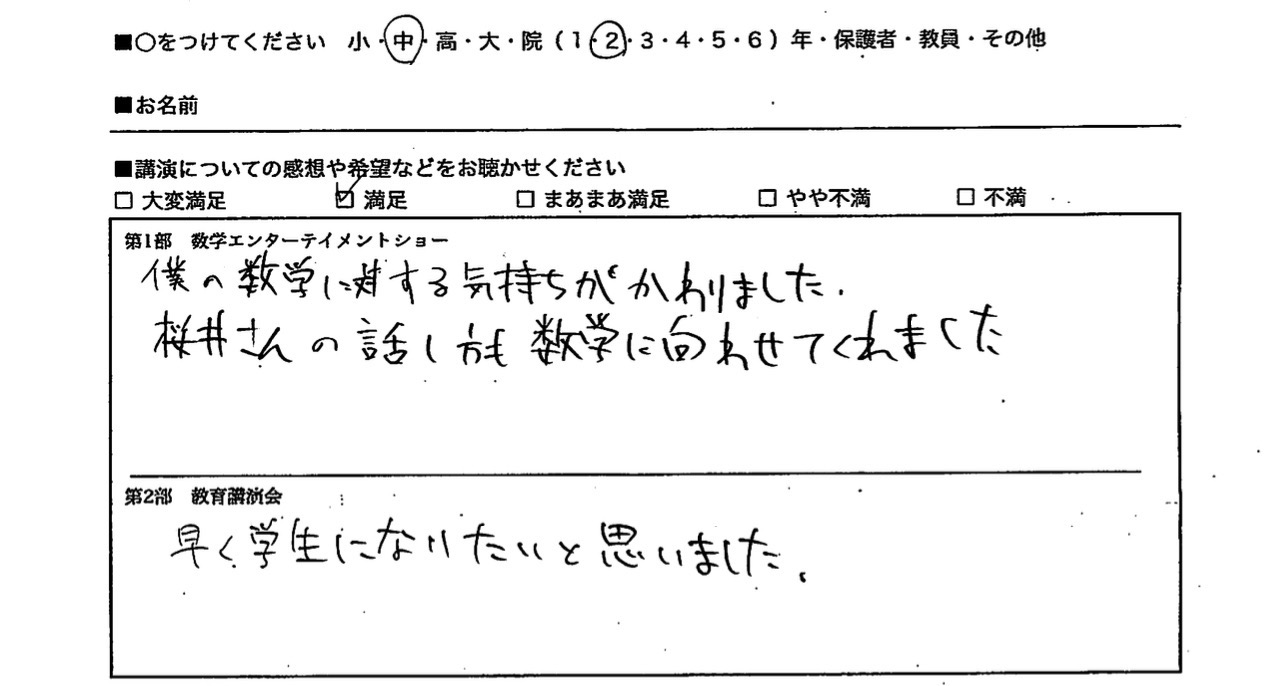 ■○をつけてください 小・中・高・大・院(1・2・3・4・5・6)年・保護者・教員・その他
■お名前
■講演についての感想や希望などをお聴かせください
□ 大変満足 ☑ 満足 □ まあまあ満足 □ やや不満 □ 不満
第1部 数学エンターテイメントショー
僕の数学に対する気持ちがかわりました.
桜井さんの話し方も数学に向わせてくれました
第2部 教育講演会
早く学生になりたいと思いました.